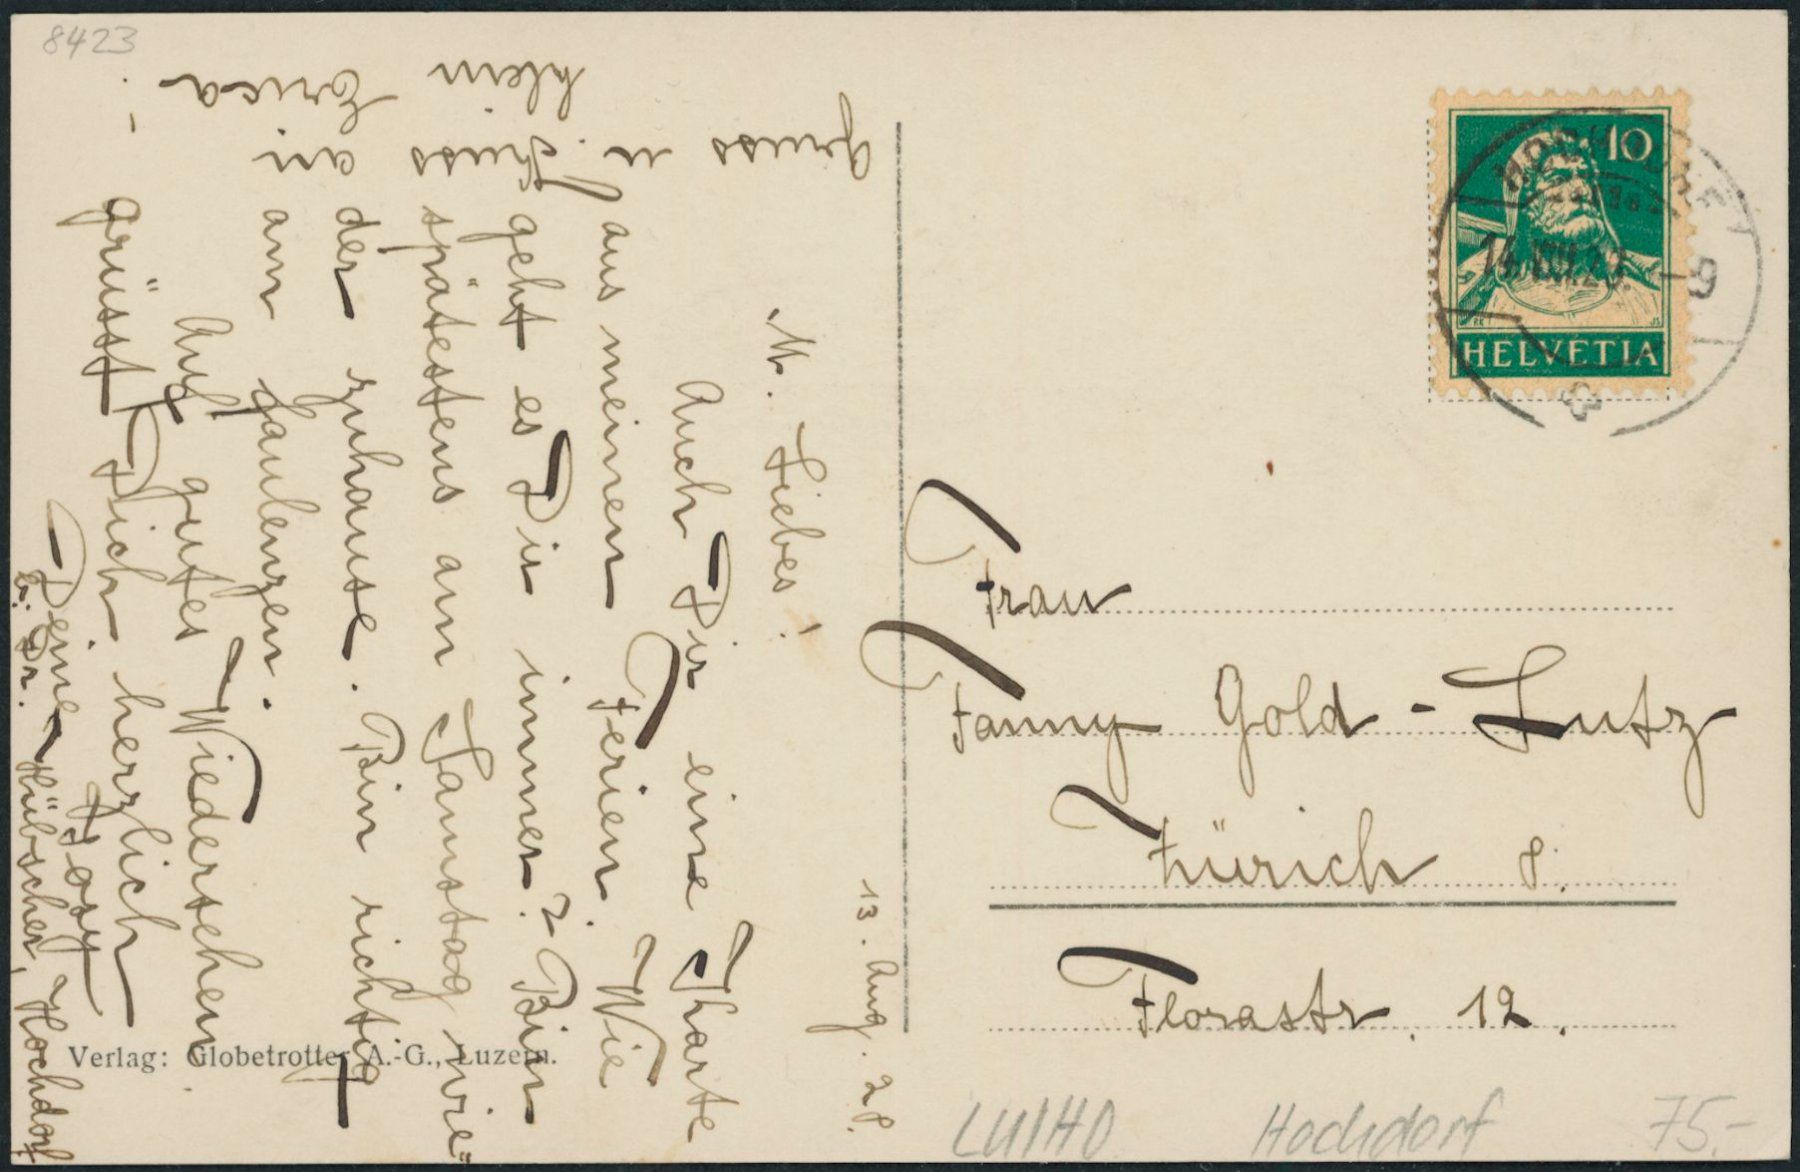 8423
13. Aug. 28.
M. Liebes!
Auch Dir eine Kharte
aus meinen Ferien. Wie
geht es Dir immer? Bin
spätestens am Samstag wie-
der zuhause. Bin richtig
am faulenzen.
Auf gutes Wiedersehen.
grüsst Dich herzlich
Deine Josy
b. Dr. Hübscher, Hochdorf
Gruss u. Kuss
klein
Erica
Frau
Fanny Gold-Lutz
Zürich 8.
Florastr. 12.
10
HELVETIA
HOCHDORF
14.VIII.28.-9
Verlag: Globetrotter A.-G., Luzern.
LU1HO
Hochdorf
75.-